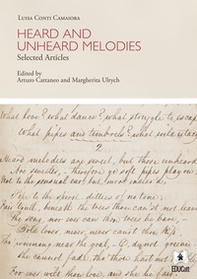 LUISA CONTI CAMAIORA
HEARD AND
UNHEARD MELODIES
Selected Articles
Edited by
Arturo Cattaneo and Margherita Ulrych
What love? what dance? what struggle to escap
What pipes and timbrels? what wild extacy
2
Heard melodies are sweet, but those unheard
Are sweeter, - therefore ye soft pipes play
Not to the sensual ear, but, more endear'd,
Pipe to the spirit ditties of no tone:
Fair youth, beneath the trees thou can'st not leave
Thy song, nor ever can those trees be bare,
Bold lover, never, never canst thou kiss
Tho winning near the goal, - O, do not grieve:
She cannot fade, tho thou hast not th
For ever wilt thou love, and she be fair
EDUCatt